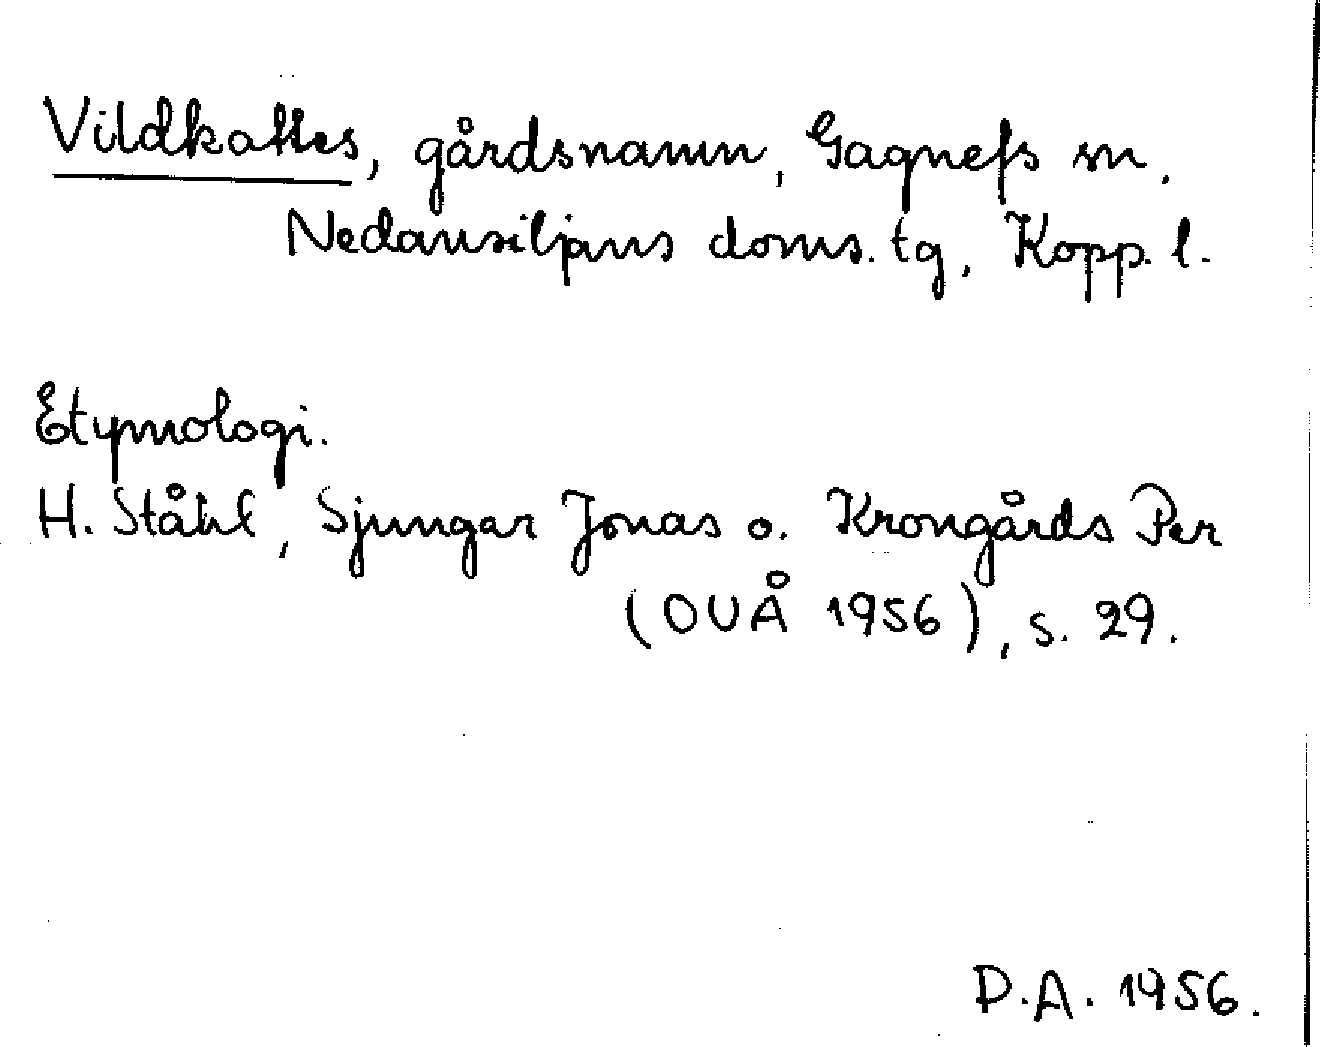 Vildkattes, gårdsnamn, Gagnefs sn.
Nedansiljans doms. tg, Kopp. l.
Etymologi.
H. Ståhl, Sjungar Jonas o. Krongårds Per
(OUÅ 1956), s. 29.
D.A. 1956.